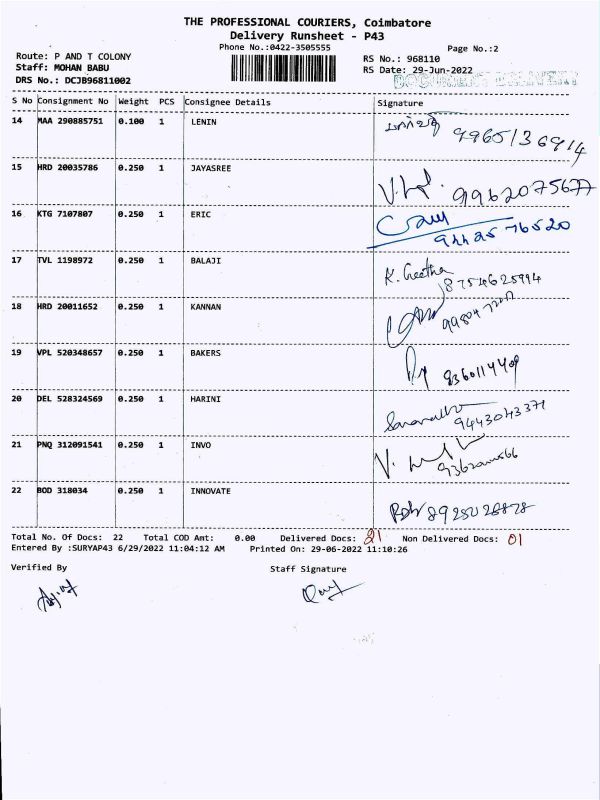 THE PROFESSIONAL COURIERS, Coimbatore
Delivery Runsheet - P43
Phone No.:0422-3505555
Page No.:2
Route: P AND T COLONY
RS No.: 968110
Staff: MOHAN BABU
RS Date: 29-Jun-2022
DRS No.: DCJB96811002
S No Consignment No Weight PCS Consignee Details Signature
14 MAA 290885751 0.100 1 LENIN 9965136914
15 HRD 20035786 0.250 1 JAYASREE 9962075677
16 KTG 7107807 0.250 1 ERIC
17 TVL 1198972 0.250 1 BALAJI K. Geetha
8754625994
18 HRD 20011652 0.250 1 KANNAN
19 VPL 520348657 0.250 1 BAKERS 9360114409
20 DEL 528324569 0.250 1 HARINI
9443043371
21 PNQ 312091541 0.250 1 INVO
22 BOD 318034 0.250 1 INNOVATE
Total No. Of Docs: 22 Total COD Amt: 0.00 Delivered Docs: 21 Non Delivered Docs: 01
Entered By :SURYAP43 6/29/2022 11:04:12 AM Printed On: 29-06-2022 11:10:26
Verified By Staff Signature